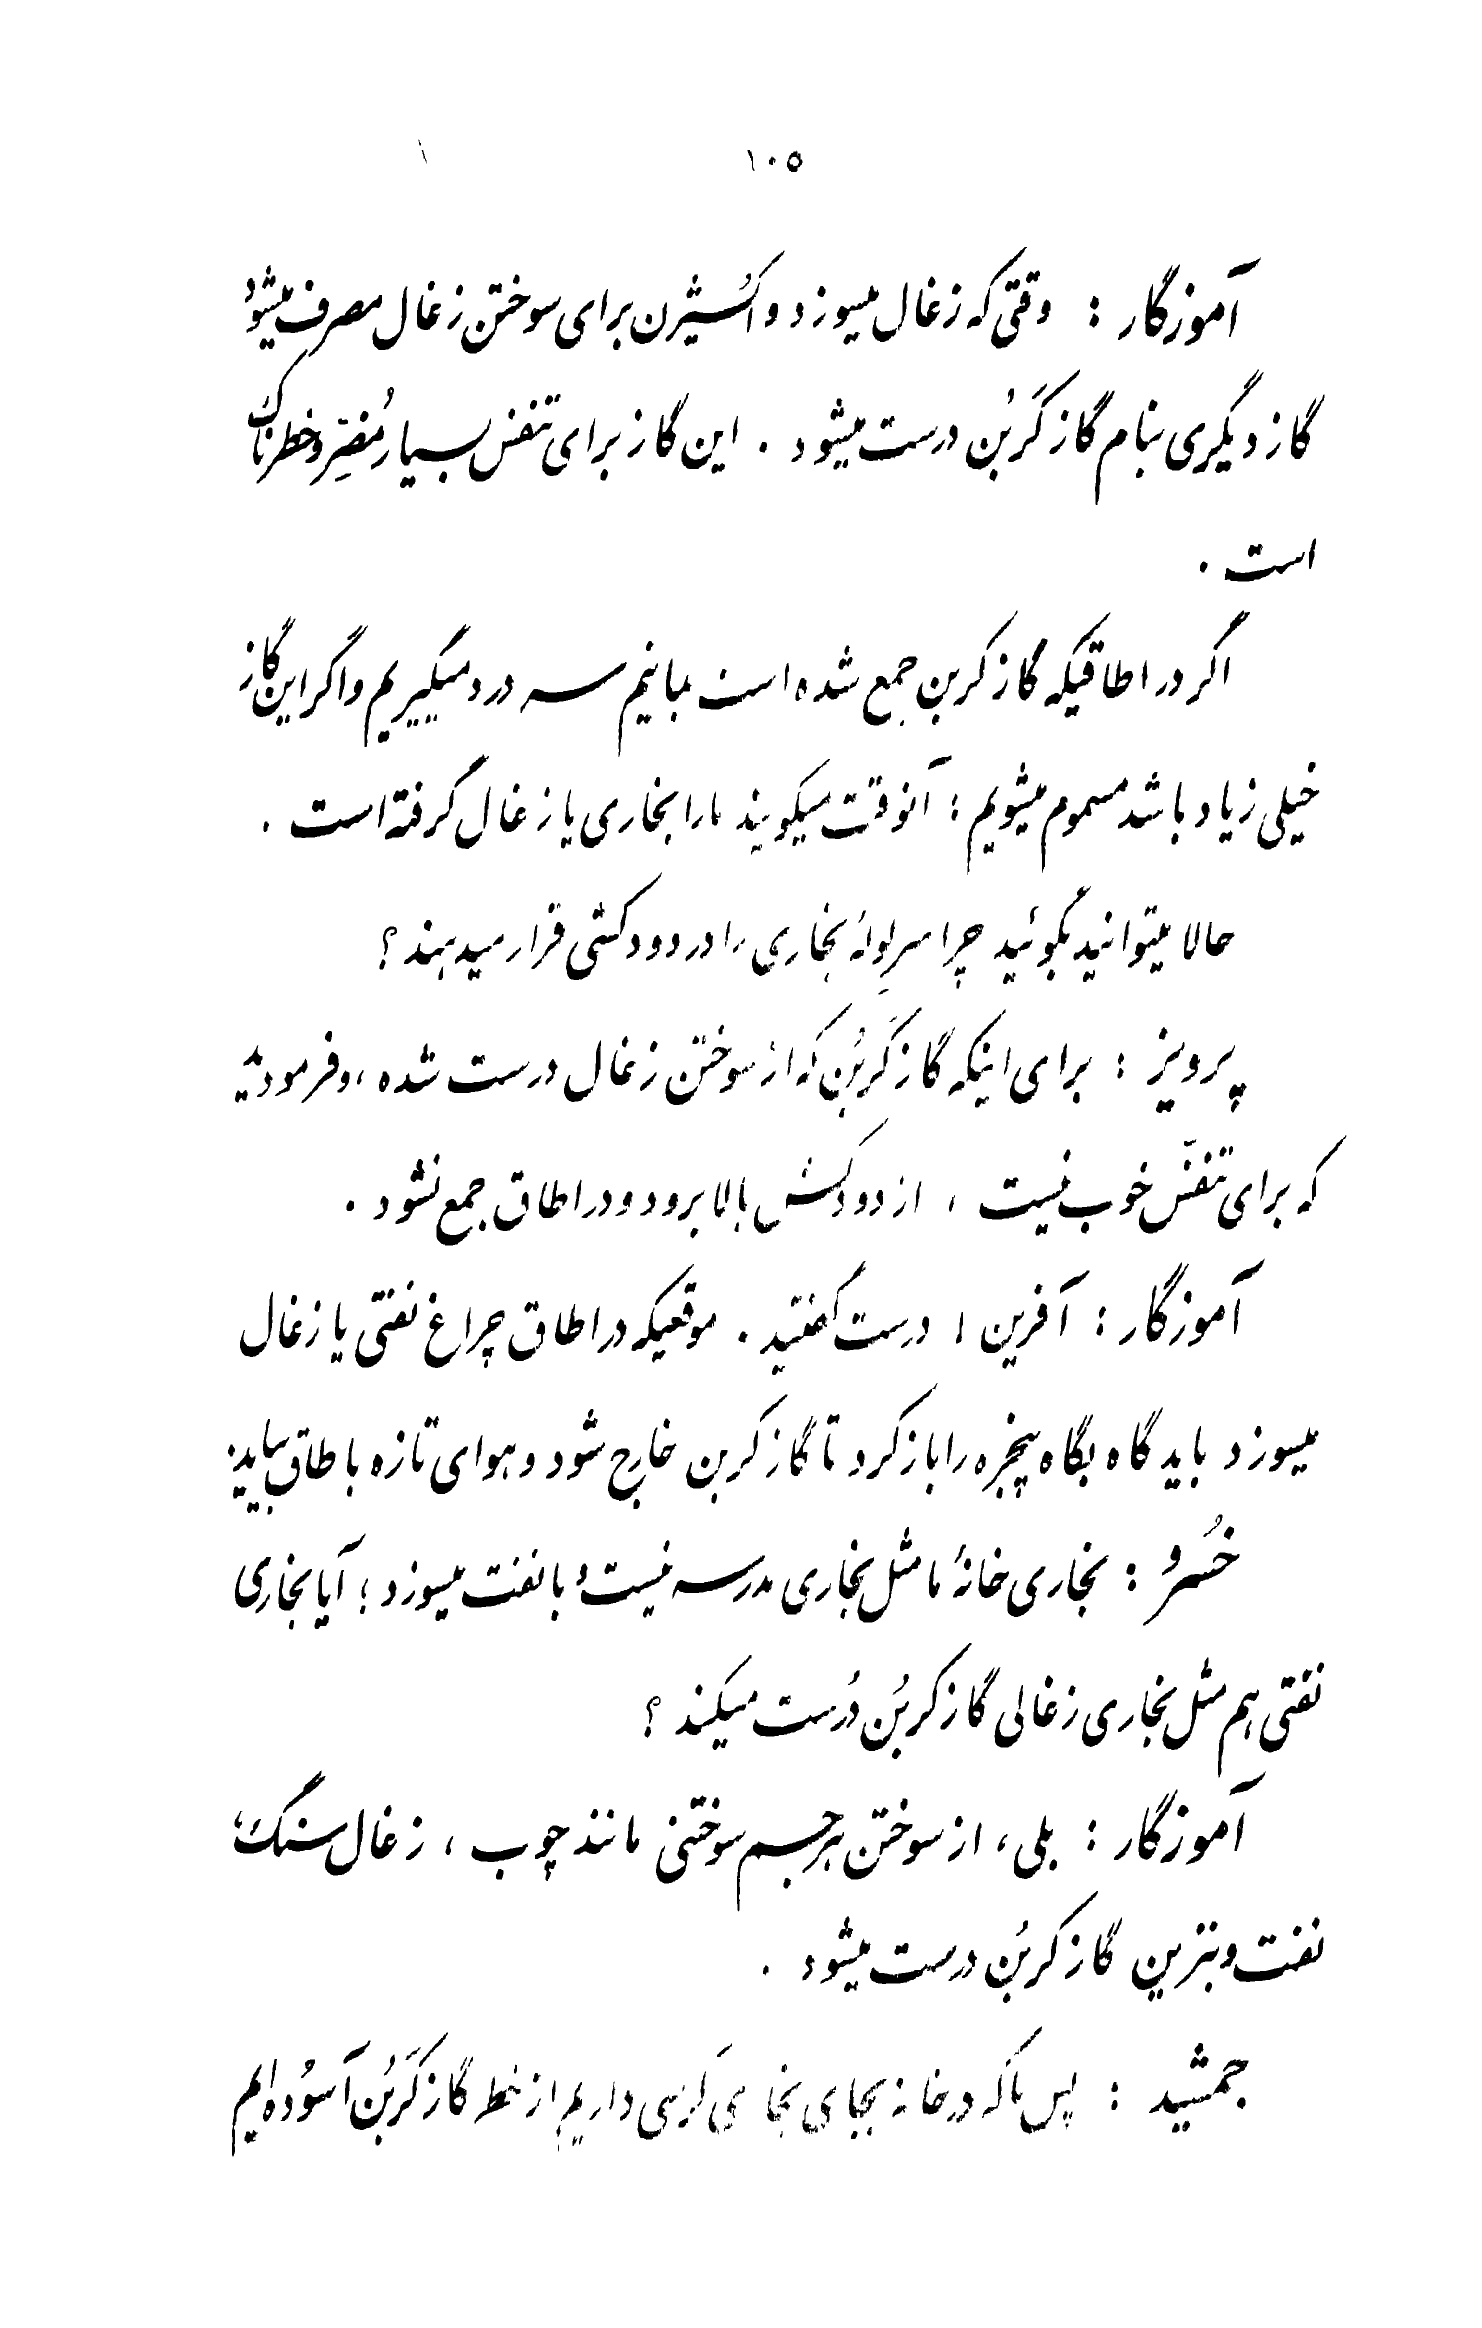 ۱۰۵
آموزگار : وقتی که زغال میسوزد و اکسیژن برای سوختن زغال مصرف میشود
گاز دیگری بنام گاز کَربُن درست میشود . این گاز برای تنفس بسیار مُضِرّ و خطرناک
است .
اگر در اطاقیکه گاز کربن جمع شده است بمانیم سر درد میگیریم و اگر این گاز
خیلی زیاد باشد مسموم میشویم ؛ آنوقت میگویند ما را بخاری یا زغال گرفته است .
حالا میتوانید بگوئید چرا سر لولهٔ بخاری را در دودکشی قرار میدهند ؟
پرویز : برای اینکه گاز کَربُن که از سوختن زغال درست شده ، و فرمودید
که برای تنفّس خوب نیست ، از دودکش بالا برود و در اطاق جمع نشود .
آموزگار : آفرین ! درست گفتید . موقعیکه در اطاق چراغ نفتی یا زغال
میسوزد باید گاه بگاه پنجره را باز کرد تا گاز کربن خارج شود و هوای تازه باطاق بیاید .
خُسرو : بخاری خانهٔ ما مثل بخاری مدرسه نیست و با نفت میسوزد ؛ آیا بخاری
نفتی هم مثل بخاری زغالی گاز کربُن دُرست میکند ؟
آموزگار : بلی ، از سوختن هر جسم سوختنی مانند چوب ، زغال سنگ ،
نفت و بنزین گاز کربُن درست میشود .
جمشید : پس ما که در خانه بجای بخاری کُرسی داریم از خطر گاز کَربُن آسُوده ایم